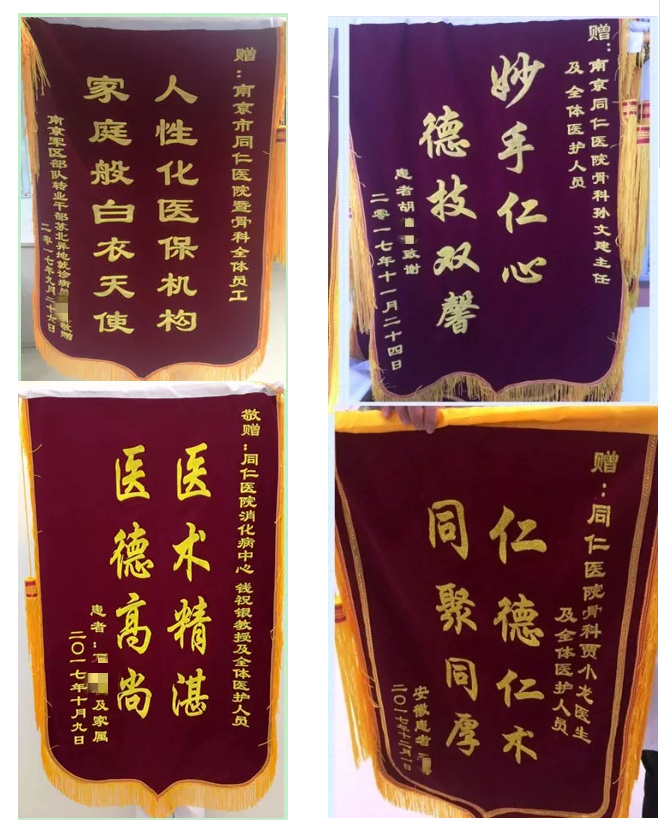 赠：南京市同仁医院暨骨科全体员工
人性化医保机构
家庭般白衣天使
南京军区部队转业干部苏北异地就诊病员
敬赠
二零一七年九月二十九日
赠：南京同仁医院骨科孙文建主任
及全体医护人员
妙手仁心
德技双馨
患者胡
致谢
二零一七年十一月二十四日
敬赠：同仁医院消化病中心 钱祝银教授及全体医护人员
医术精湛
医德高尚
患者：
及家属
二〇一七年十月九日
赠：同仁医院骨科贾小龙医生
及全体医护人员
仁德仁术
同聚同厚
安徽患者
二〇一七年十二月一日